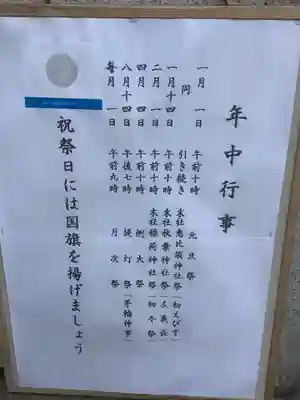 年中行事
一月一日 午前十時 元旦祭
同 引き続き 末社恵比須神社祭(初えびす)
一月十四日 午前十時 末社秋葉神社祭(左義長)
二月一日 午前十時 末社稲荷神社祭(初午祭)
四月四日 午前十時 例大祭
八月十四日 午後六時 提灯祭(茅輪神事)
毎月一日 午前九時 月次祭
祝祭日には国旗を揚げましょう